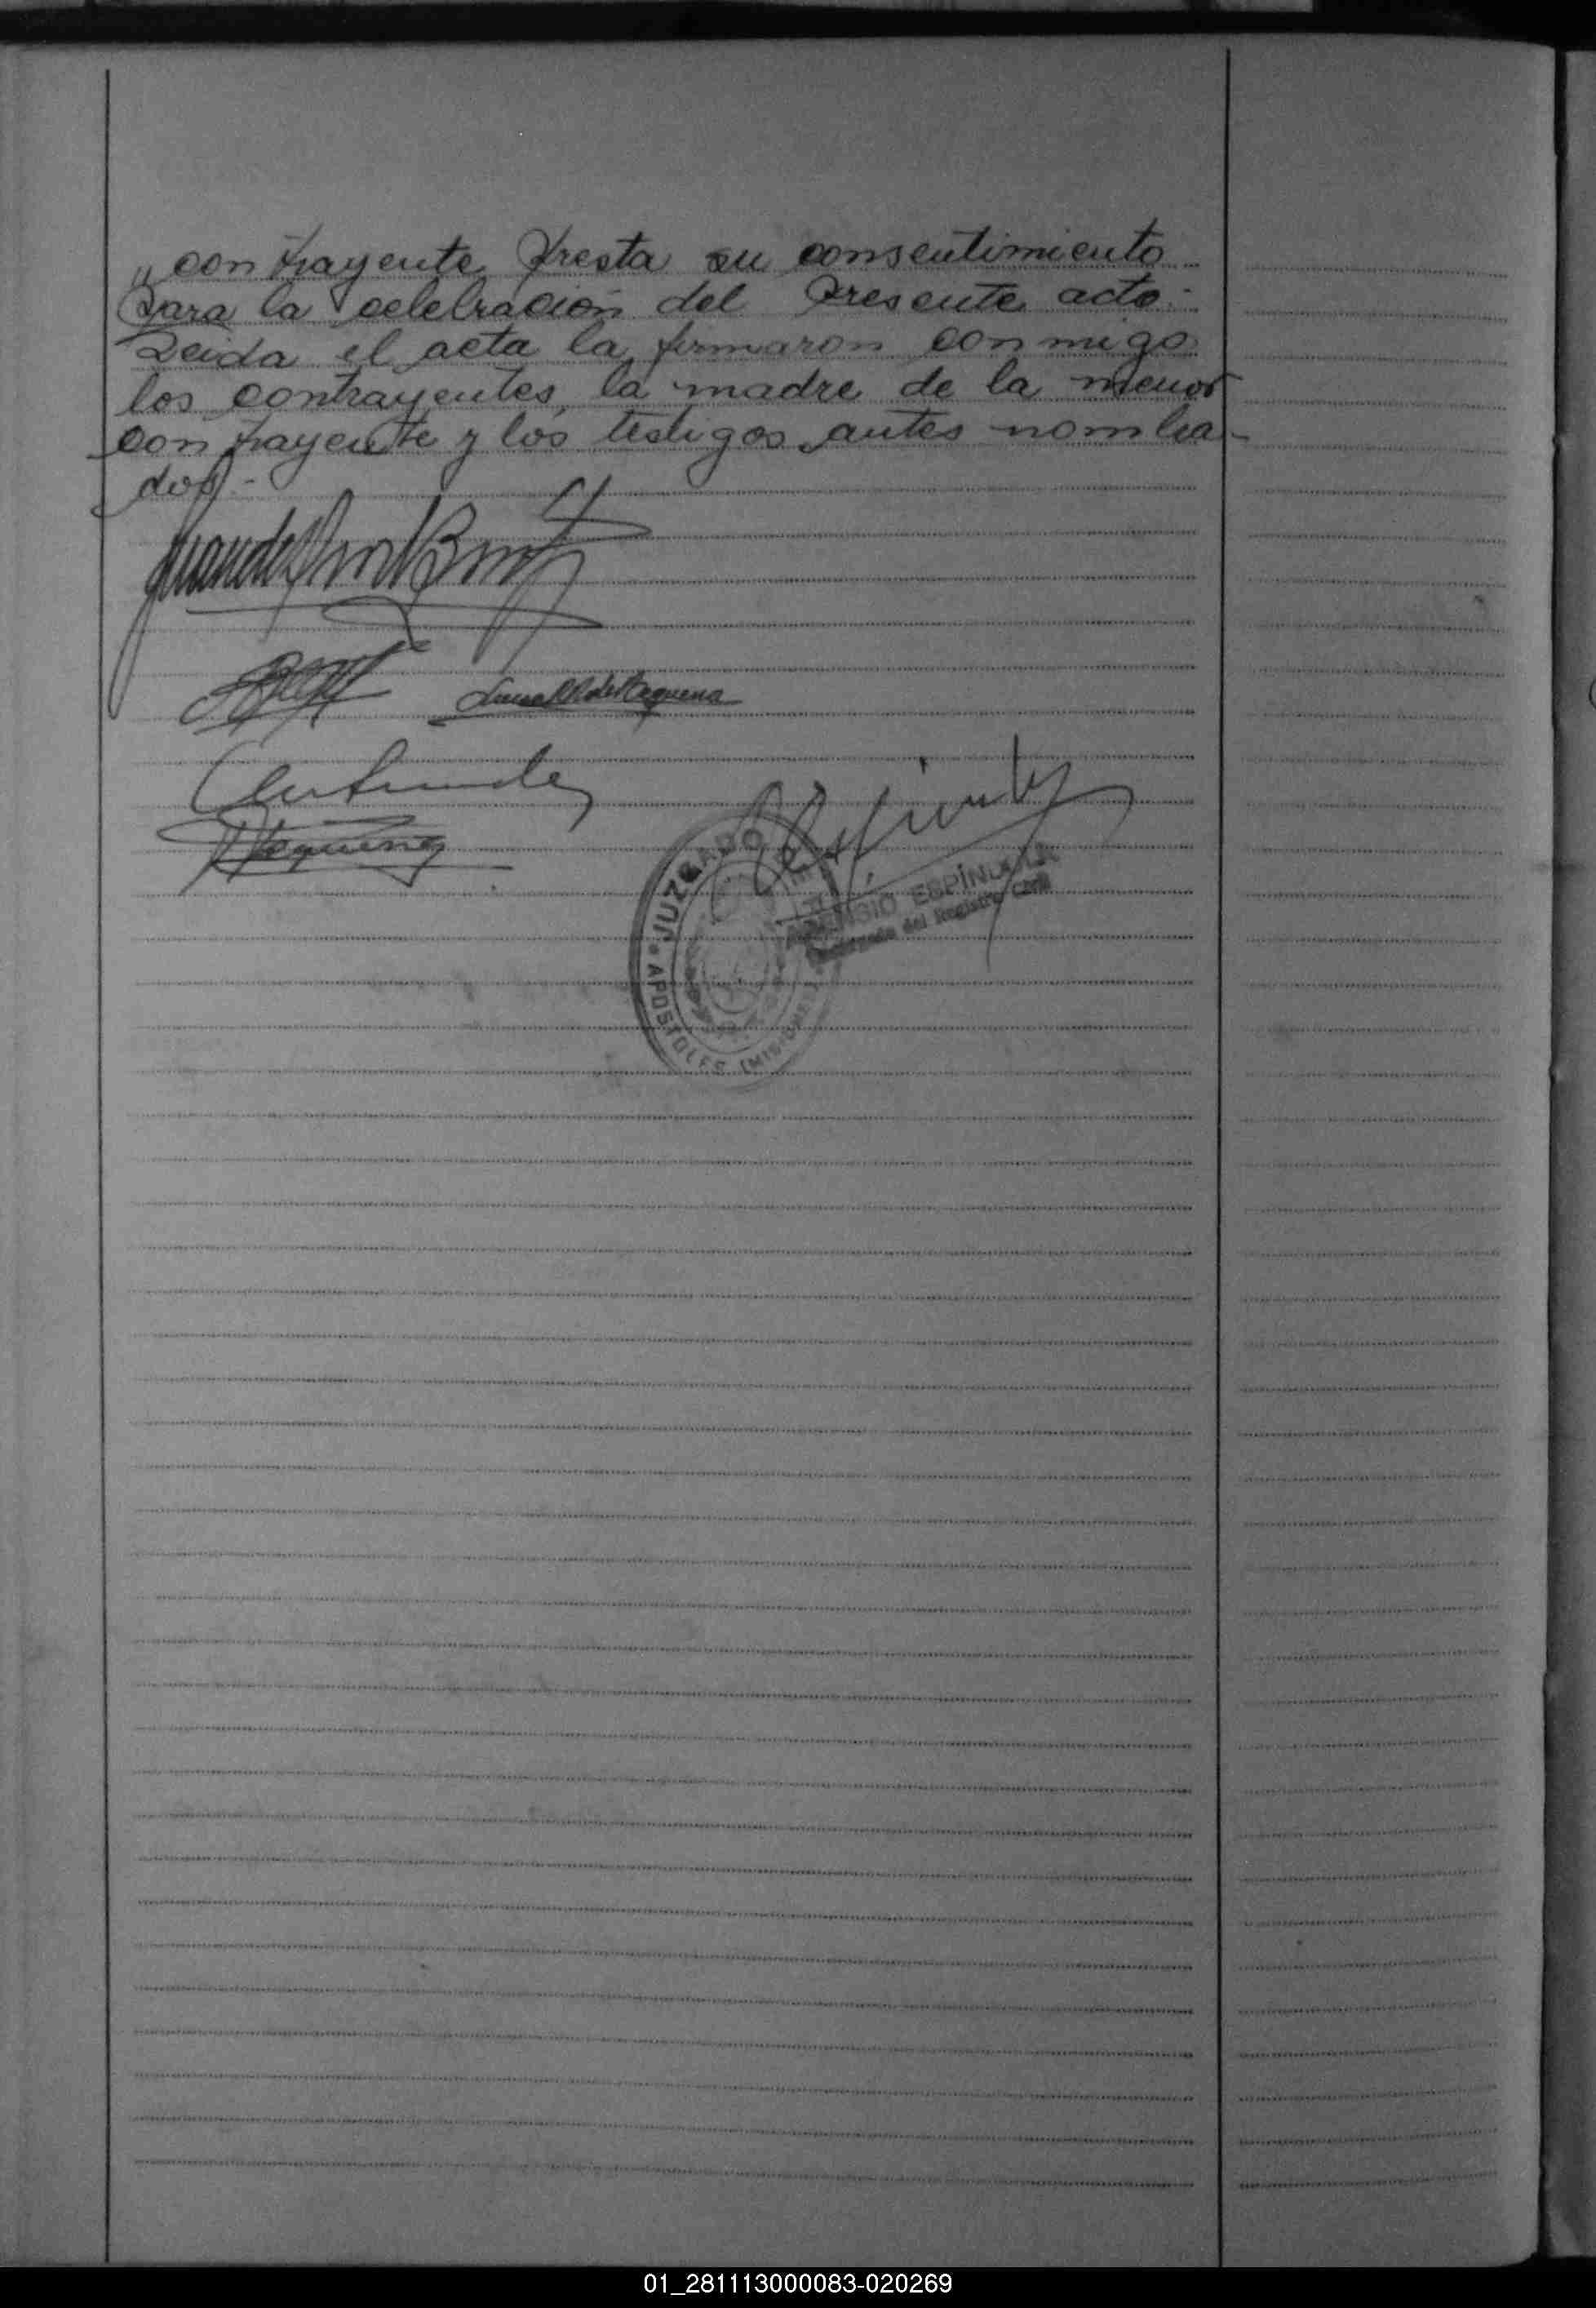 " contrayente presta su consentimiento
para la celebración del presente acto.-
Leida el acta la firmaron conmigo
los contrayentes, la madre de la menor
contrayente y los testigos antes nombra-
dos.-
de Requena
Requena
JUZGADO DE
APOSTOLES (MISIONES)
ESPÍNDOLA
Encargado del Registro Civil
01_281113000083-020269